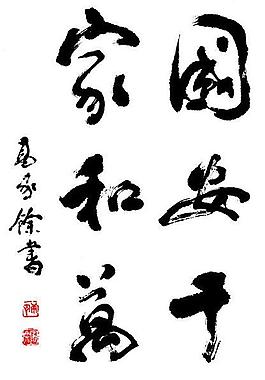 國安千
家和萬
餘書